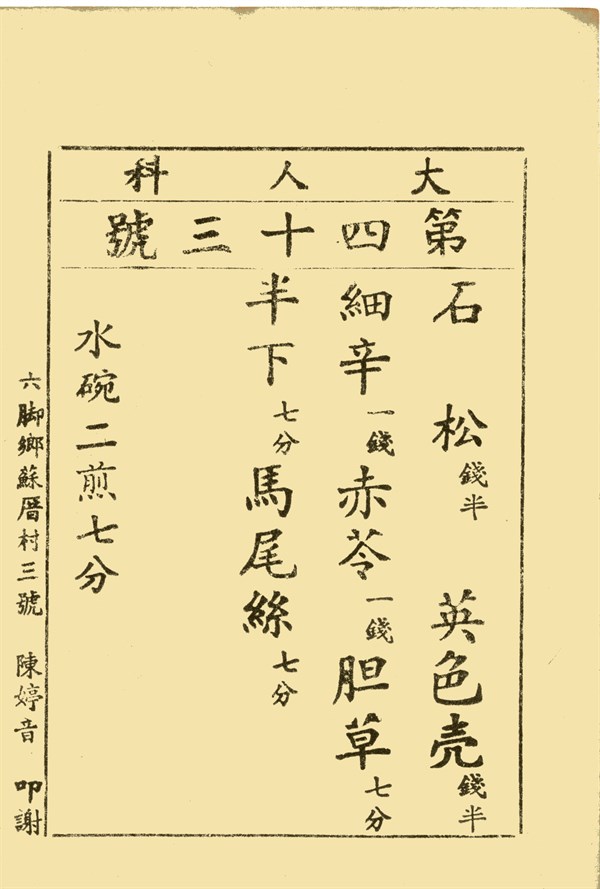 大人科
第四十三號
石松錢半英色壳錢半
細辛一錢赤苓一錢胆草七分
半下七分馬尾絲七分
水碗二煎七分
六脚鄉蘇厝村三號 陳婷音 叩謝